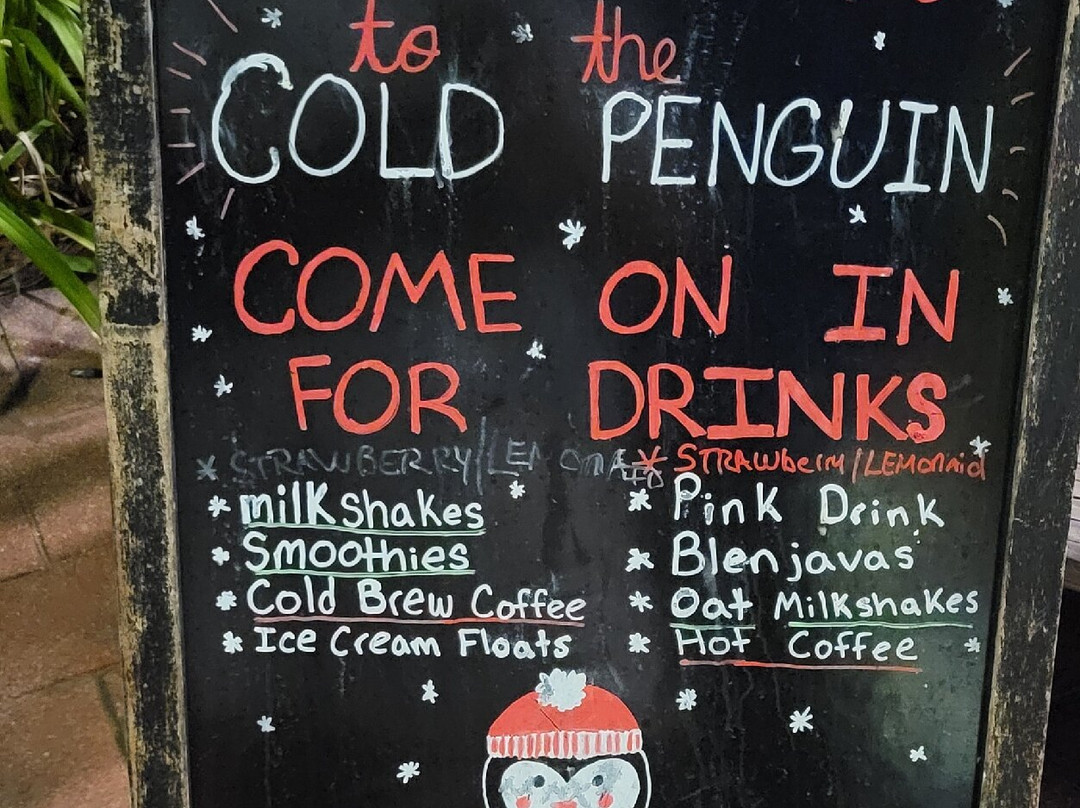 to the
COLD PENGUIN
COME ON IN
FOR DRINKS
* STRAWBERRY/LEMONAID * STRAWberry/LEMONAid
* milkshakes * Pink Drink
* Smoothies * Blenjavas
* Cold Brew Coffee * Oat Milkshakes
* Ice Cream Floats * Hot Coffee